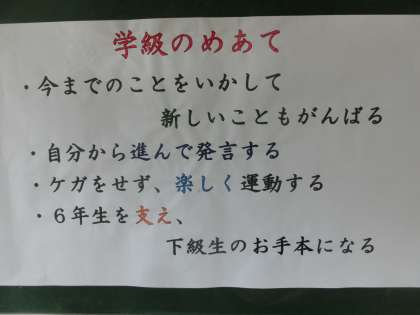 学級のめあて
・今までのことをいかして
新しいこともがんばる
・自分から進んで発言する
・ケガをせず、楽しく運動する
・６年生を支え、
下級生のお手本になる